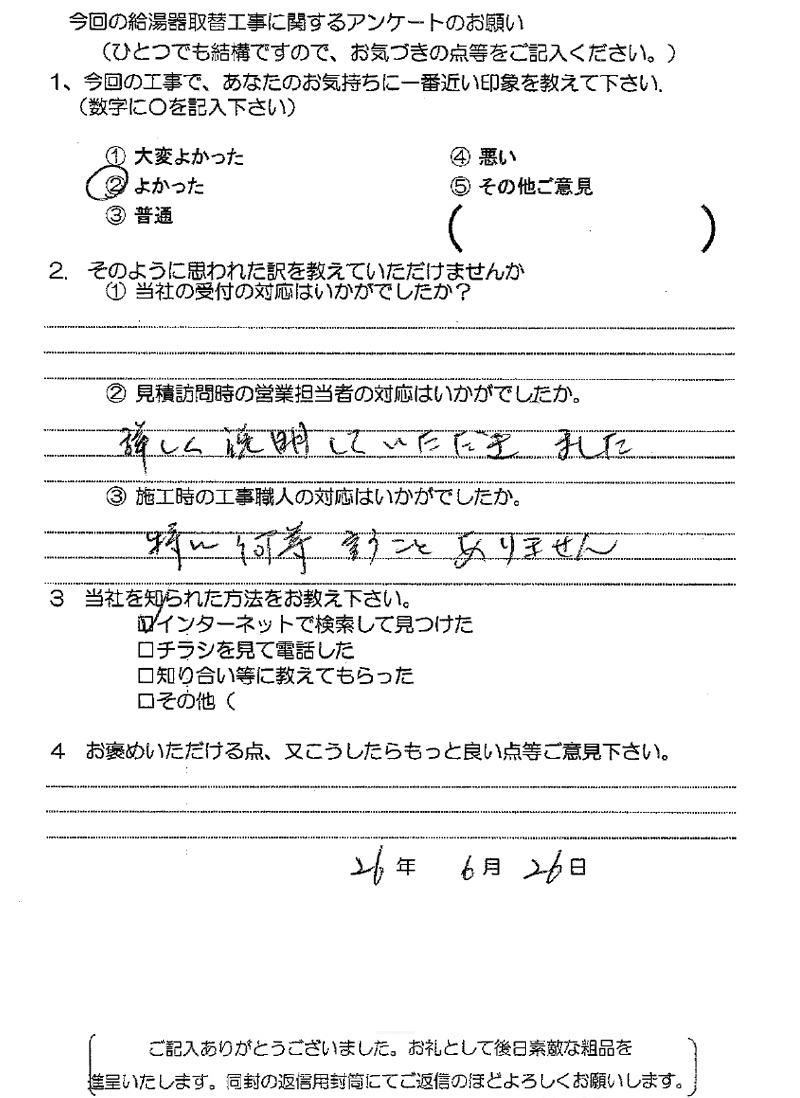 今回の給湯器取替工事に関するアンケートのお願い
（ひとつでも結構ですので、お気づきの点等をご記入ください。）
1、今回の工事で、あなたのお気持ちに一番近い印象を教えて下さい.
（数字に〇を記入下さい）
① 大変よかった
② よかった
③ 普通
④ 悪い
⑤ その他ご意見
（　）
2. そのように思われた訳を教えていただけませんか
① 当社の受付の対応はいかがでしたか？
② 見積訪問時の営業担当者の対応はいかがでしたか。
詳しく説明していただきました
③ 施工時の工事職人の対応はいかがでしたか。
特に何等言うことありません
3 当社を知られた方法をお教え下さい。
☑インターネットで検索して見つけた
□チラシを見て電話した
□知り合い等に教えてもらった
□その他（
4 お褒めいただける点、又こうしたらもっと良い点等ご意見下さい。
26年 6月 26日
ご記入ありがとうございました。お礼として後日素敵な粗品を
進呈いたします。同封の返信用封筒にてご返信のほどよろしくお願いします。